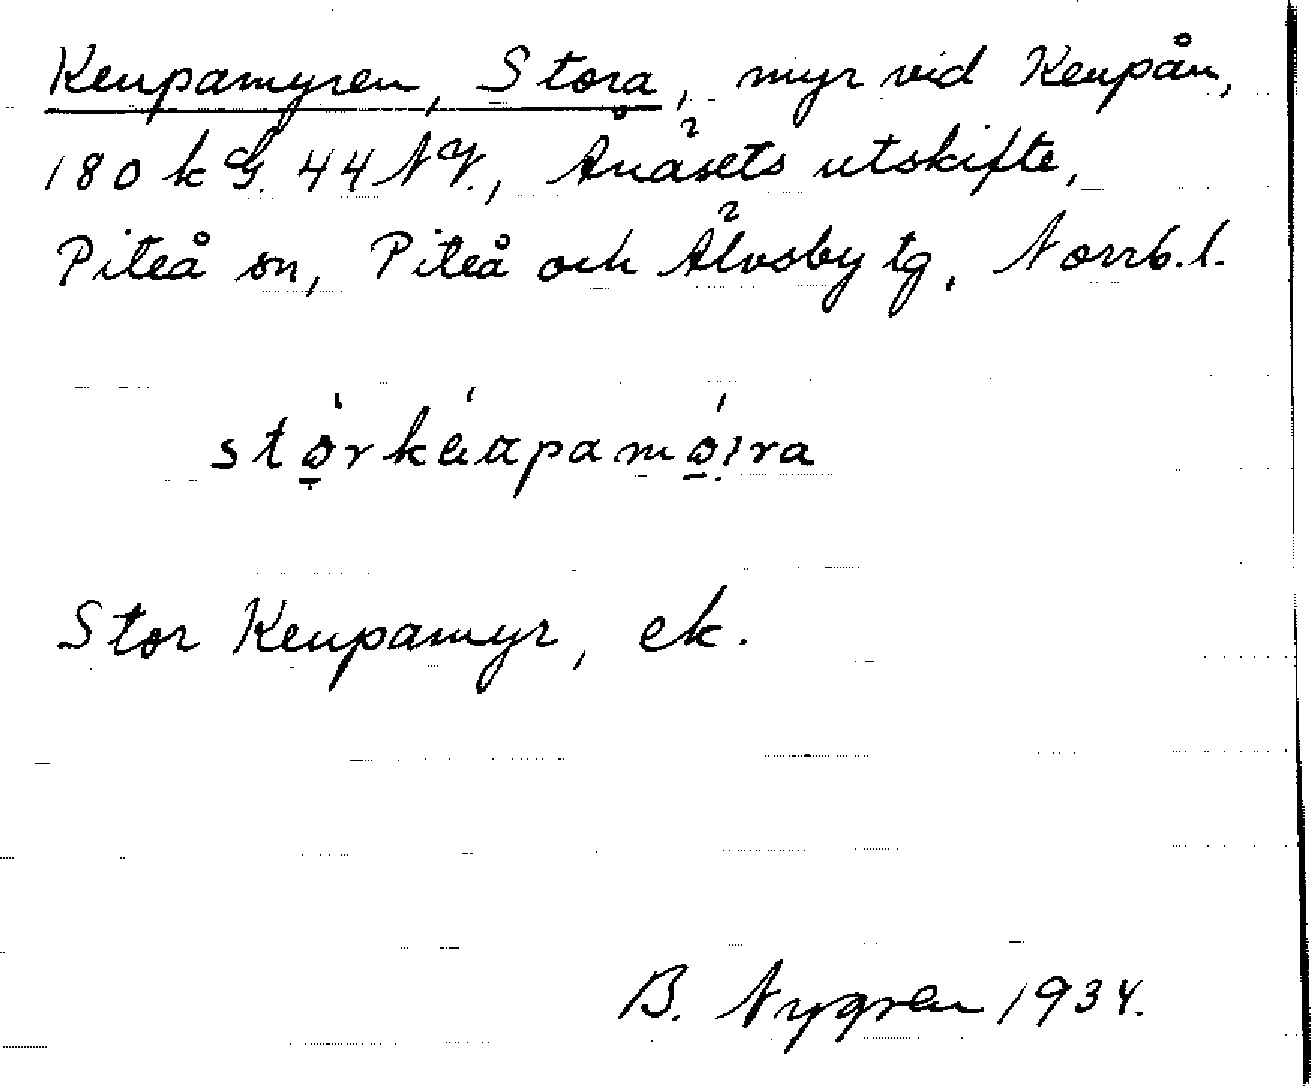 Keupamyren, Stora, myr vid Keupån,
180 k G. 44 NV., Ånäsets utskifte,
Piteå sn, Piteå och Älvsby tg, Norrb. l.
Stor Keupamyr, ek.
B. Nygren 1934.